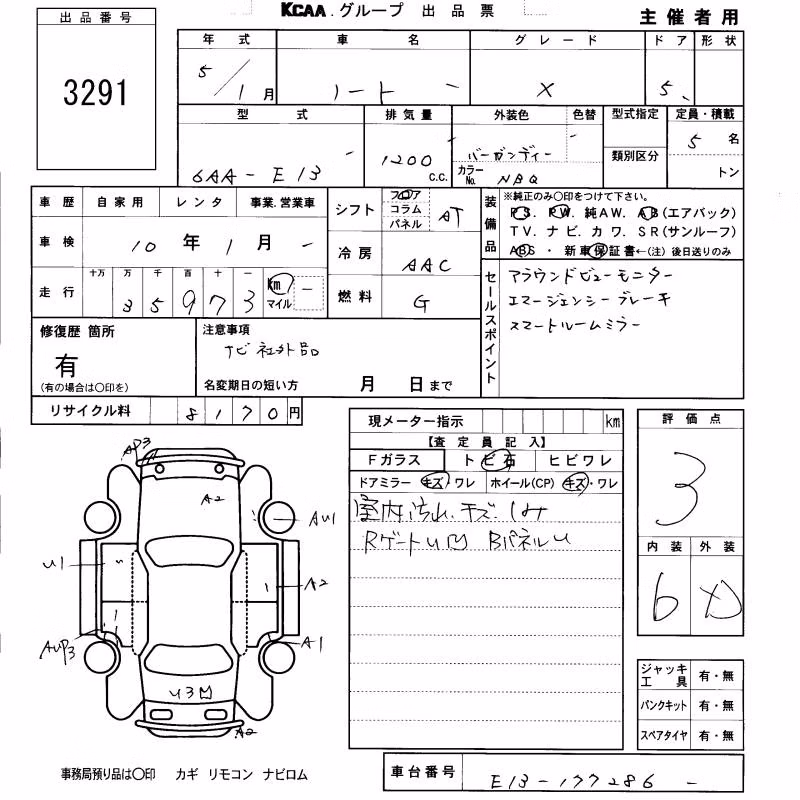 KCAA.グループ 出品票
主催者用
出品番号
3291
年式 車名 グレード ドア 形状
5/1月 ノート X 5
型式 排気量 外装色 色替 型式指定 定員・積載
6AA-E13 1200 c.c. バーガンディー 5名
カラーNo. NBQ 類別区分 トン
車歴 自家用 レンタ 事業.営業車
車検 10年1月
走行 十万 万 千 百 十 一
35973 Km マイル
シフト フロア コラム パネル AT
冷房 AAC
燃料 G
装備品 ※純正のみ〇印をつけて下さい。
PS. PW. 純AW. AB(エアバック)
TV. ナビ. カワ. SR(サンルーフ)
ABS・新車保証書←(注)後日送りのみ
セールスポイント
アラウンドビューモニター
エマージェンシーブレーキ
スマートルームミラー
修復歴 箇所
有
(有の場合は〇印を)
注意事項
ナビ社外品
名変期日の短い方 月 日まで
リサイクル料 8170円
現メーター指示 km
【査定員記入】
Fガラス トビ石 ヒビワレ
ドアミラー キズ・ワレ ホイール(CP) キズ・ワレ
室内汚れ.キズ.しみ
Rゲートu凹 Bパネルu
評価点
3
内装 外装
6 D
AP3
A2
AU1
U1
A2
AUP3
A1
U3凹
A2
ジャッキ工具 有・無
パンクキット 有・無
スペアタイヤ 有・無
事務局預り品は〇印 カギ リモコン ナビロム
車台番号 E13-177286